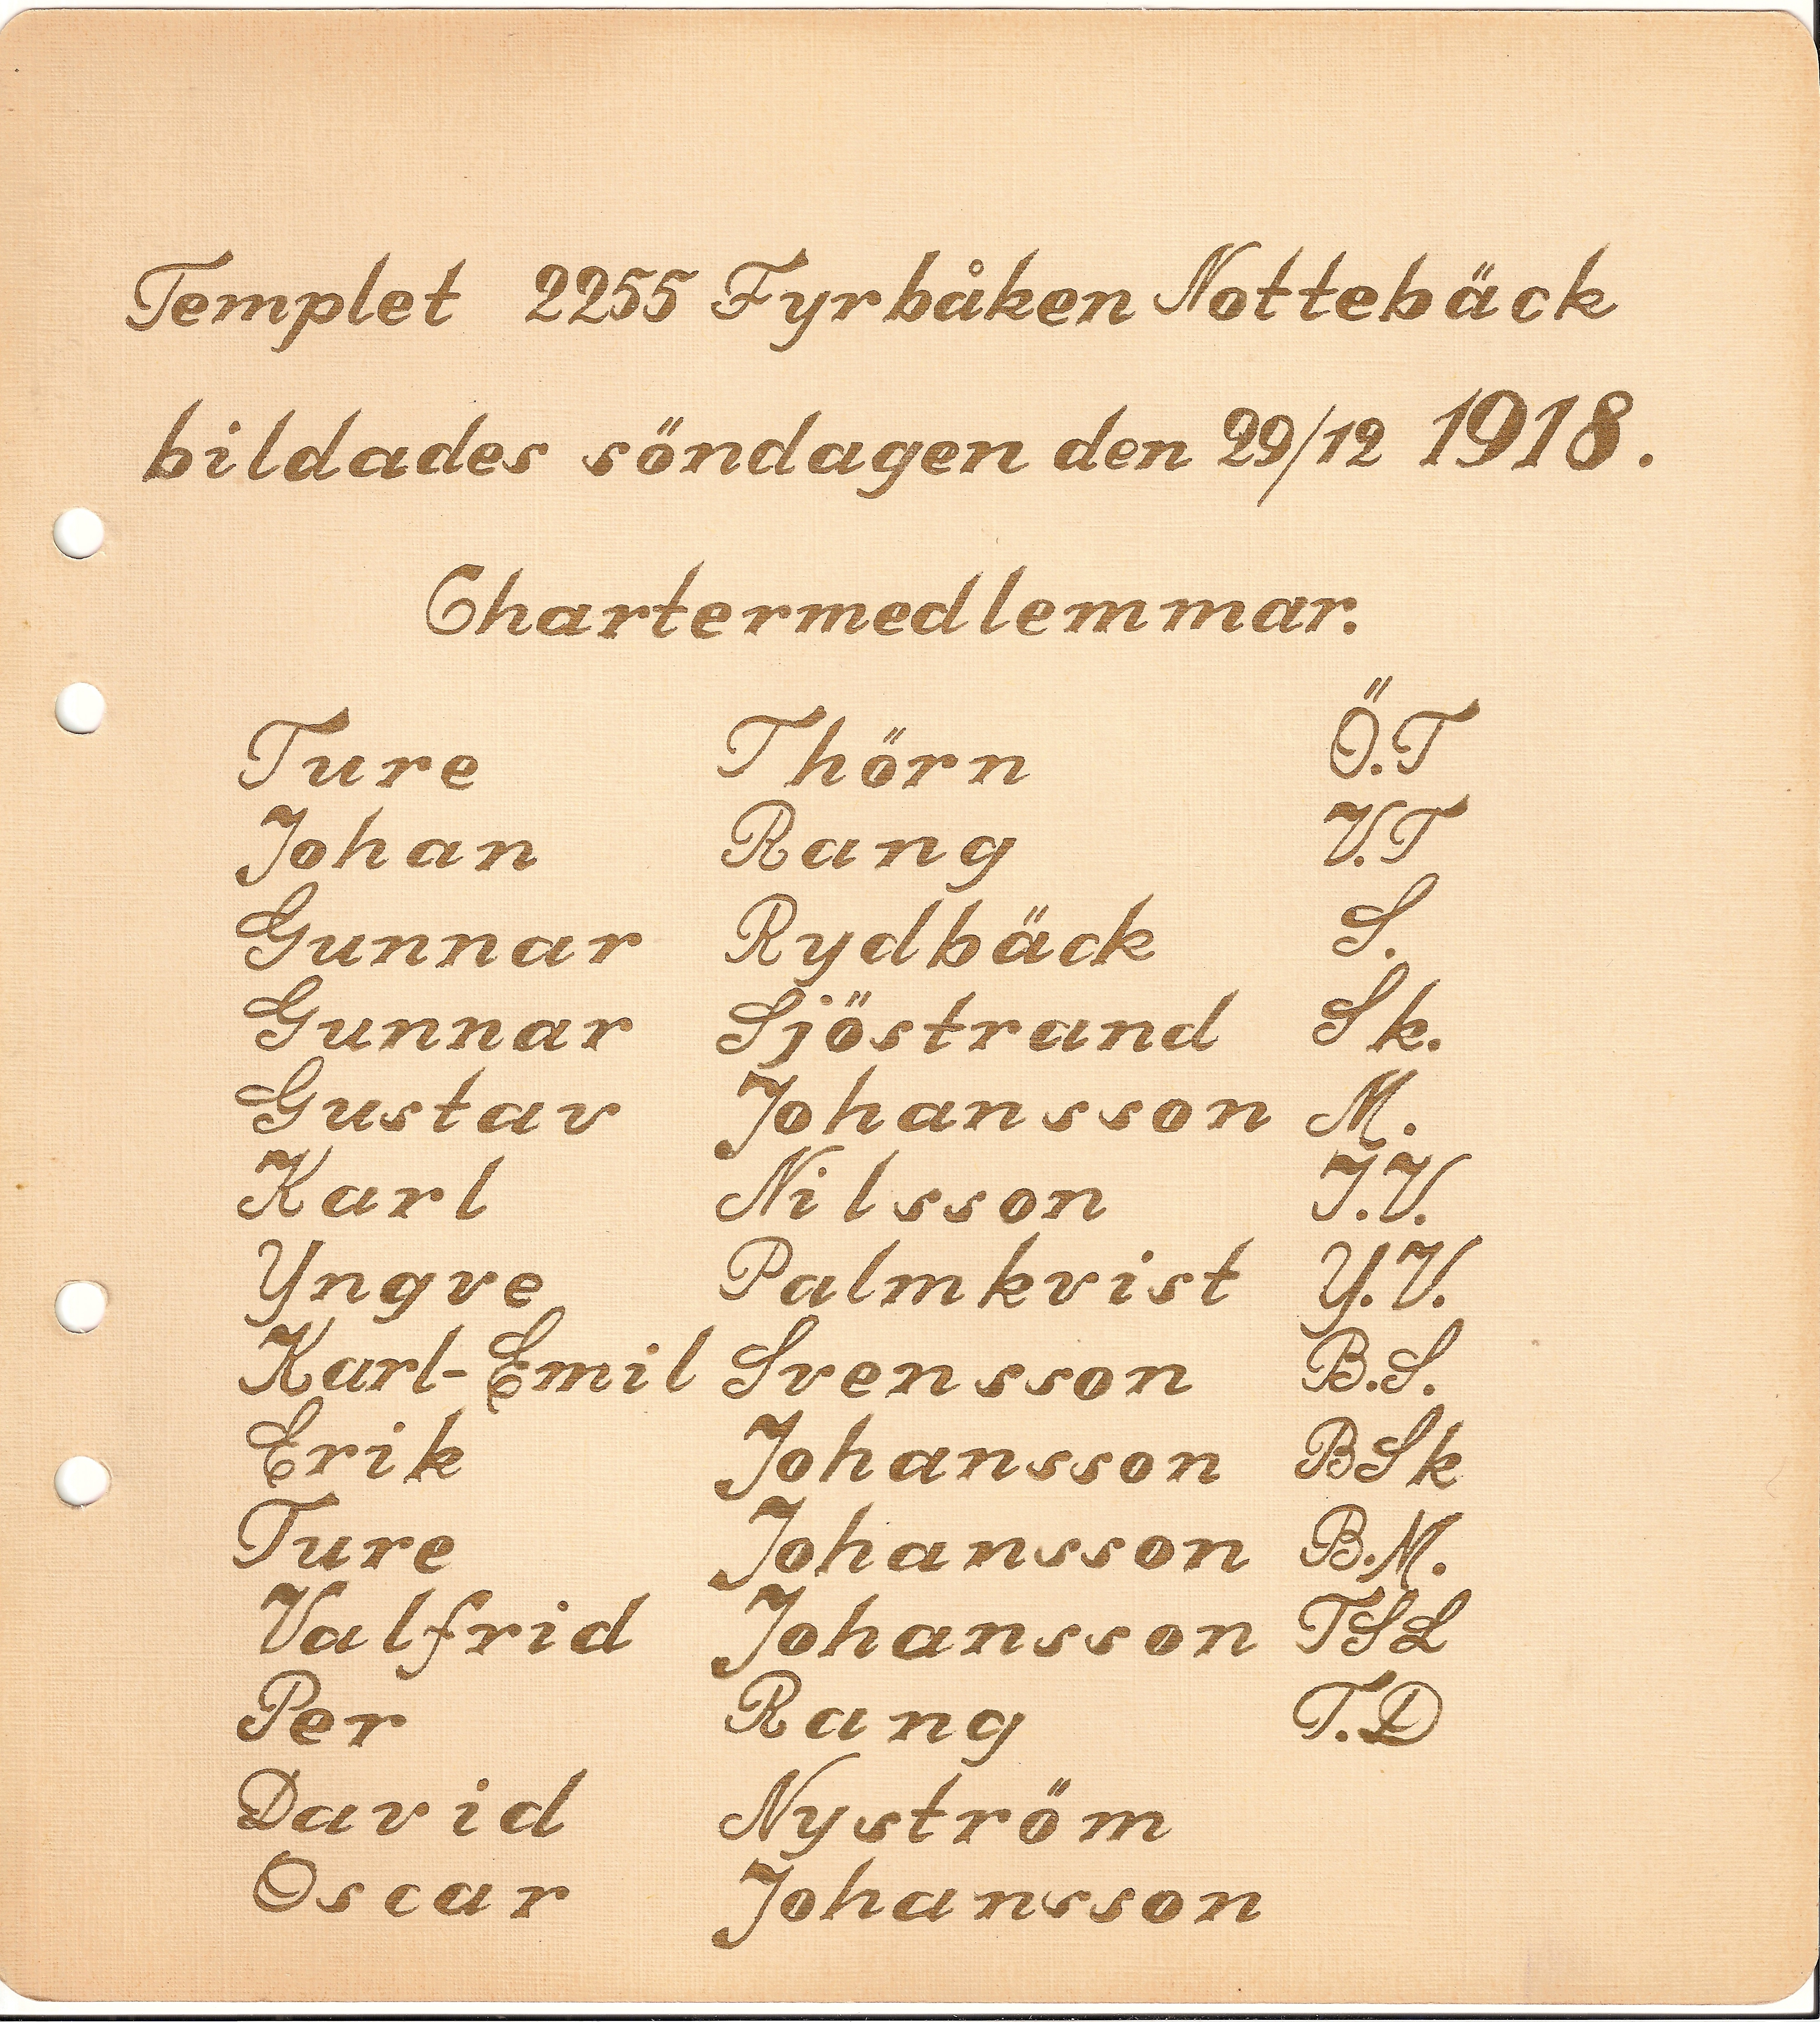 Templet 2255 Fyrbåken Nottebäck
bildades söndagen den 29/12 1918.
Chartermedlemmar.
Ture Thörn Ö.T
Johan Rang V.T
Gunnar Rydbäck S.
Gunnar Sjöstrand Sk.
Gustav Johansson M.
Karl Nilsson I.V.
Yngve Palmkvist Y.V.
Karl-Emil Svensson B.S.
Erik Johansson BSk
Ture Johansson B.M.
Valfrid Johansson TSL
Per Rang T.D
David Nyström
Oscar Johansson